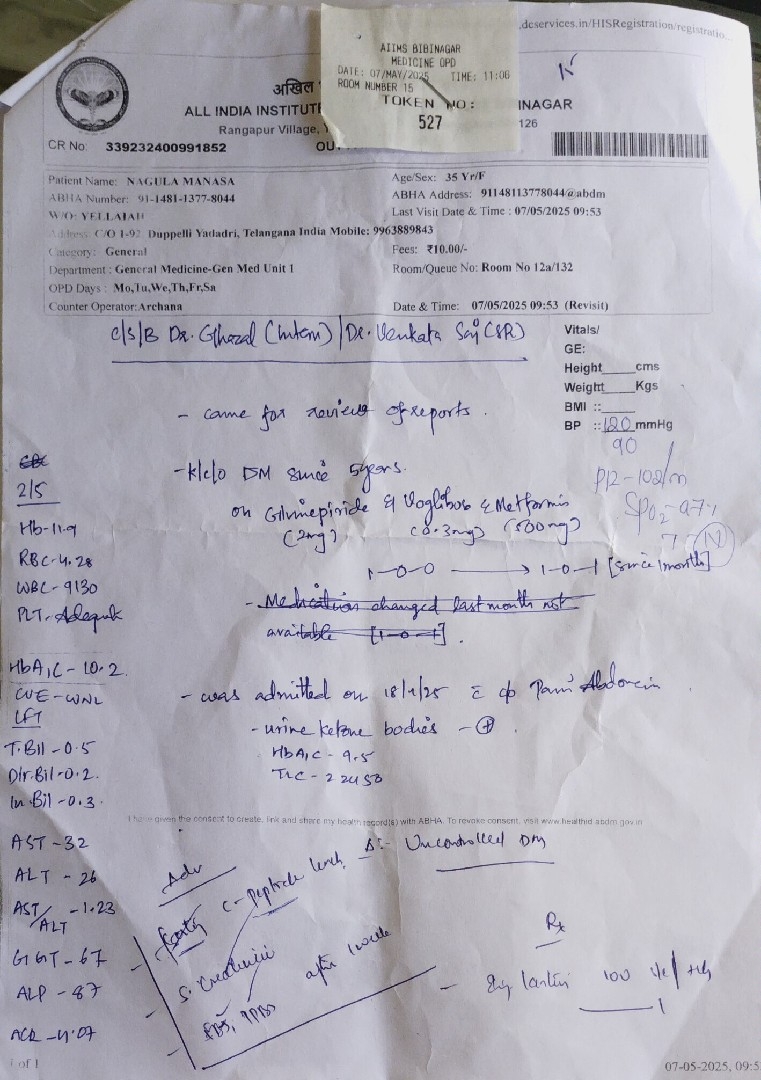 .dcservices.in/HISRegistration/registratio...
AIIMS BIBINAGAR
MEDICINE OPD
DATE: 07/MAY/2025 TIME: 11:06
ROOM NUMBER 15
TOKEN NO:
527
अखिल
ALL INDIA INSTITUTE INAGAR
Rangapur Village, 126
CR No: 339232400991852
Patient Name: NAGULA MANASA
Age/Sex: 35 Yr/F
ABHA Number: 91-1481-1377-8044
ABHA Address: 91148113778044@abdm
W/O: YELLAIAH
Last Visit Date & Time : 07/05/2025 09:53
Address: C/O 1-92 Duppelli Yadadri, Telangana India Mobile: 9963889843
Category: General
Fees: ₹10.00/-
Department : General Medicine-Gen Med Unit 1
Room/Queue No: Room No 12a/132
OPD Days : Mo,Tu,We,Th,Fr,Sa
Counter Operator:Archana
Date & Time: 07/05/2025 09:53 (Revisit)
c/s/B Dr. Ghazal (Intern) / Dr. Venkata Sai (SR)
Vitals/
GE:
Height_____cms
Weight_____Kgs
BMI ::_____
BP :: 120 mmHg
90
PR-102/m
SpO2-97%
- came for review of reports.
- k/c/o DM since 5years.
on Glimepiride & Voglibose & Metformin
(2mg) (0.3mg) (500mg)
1-0-0 → 1-0-1 [since 1month]
- Medication changed last month not
available [1-0-1].
- was admitted on 18/4/25 c̄ c/o Pain Abdomen
- urine ketone bodies - ⊕.
HbA1C - 9.5
TLC - 22450
CBC
2/5
Hb-11.9
RBC-4.28
WBC-9130
PLT-Adequate
HbA1C-10.2
CUE-WNL
LFT
T.Bil-0.5
Dir.Bil-0.2.
In.Bil-0.3.
I have given the consent to create, link and share my health record(s) with ABHA. To revoke consent, visit www.healthid.abdm.gov.in
AST-32
ALT-26
AST/ALT-1.23
GGT-67
ALP-87
ACR-4.07
Δ:- Uncontrolled DM
Adv
Fasting C-peptide levels
S. Creatinine
FBS, PPBS after 1 week
Rx
- Inj Lantus 100
1 of 1
07-05-2025, 09:5